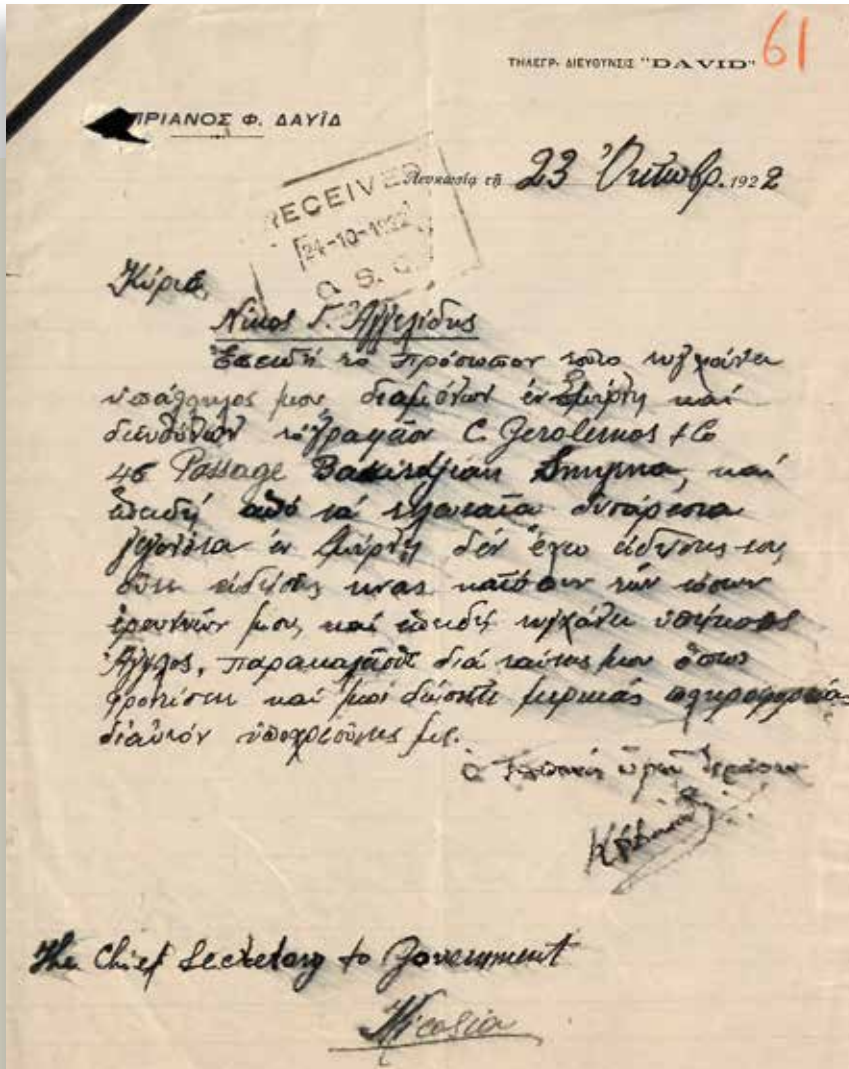 61
ΤΗΛΕΓΡ. ΔΙΕΥΘΥΝΣΙΣ "DAVID"
ΠΡΙΑΝΟΣ Φ. ΔΑΥΪΔ
Λευκωσία τῇ 23 Ὀκτωβρ. 1922
RECEIVED
24-10-1922
C. S. O.
Κύριε,
Νίκος Γ. Ἀγγελίδης
Ἐπειδή τό πρόσωπον τοῦτο τυγχάνει
ὑπάλληλος μου διαμένων ἐν Σμύρνῃ καί
διευθύνων τό γραφεῖον C. Jerolemos & Co
46 Passage Bakirdjian Smyrna, καί
ἐπειδή ἀπό τά τελευταῖα δυσάρεστα
γεγονότα ἐν Σμύρνῃ δέν ἔχω εἰδήσεις του
οὔτε εἰδήσεις τινας κατόπιν τῶν τόσων
ἐρευνῶν μου, καί ἐπειδή τυγχάνει ὑπήκοος
Ἄγγλος, παρακαλεῖσθε διά ταύτης μου ὅπως
φροντίσητε καί μοί δώσητε μερικάς πληροφορίας
δι' αὐτόν ὑποχρεοῦντες με.
The Chief Secretary to Government
Nicosia